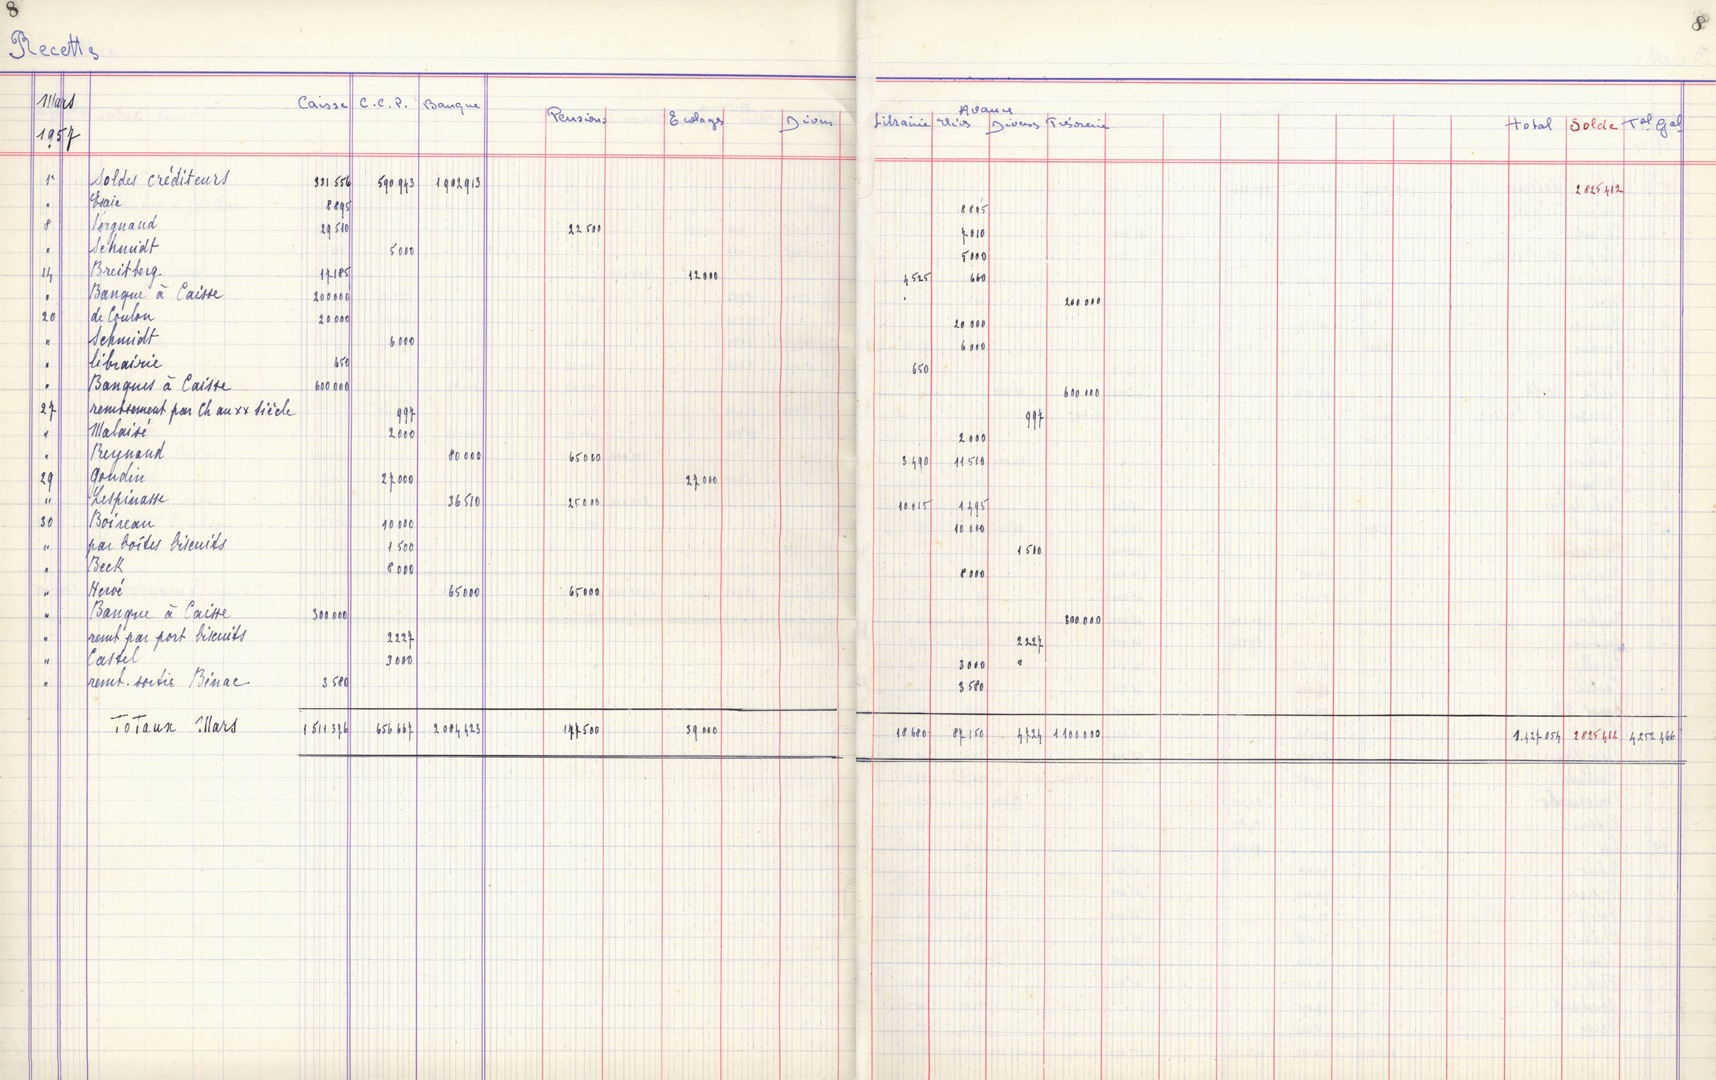 8 8
Recettes
Mars 1957 Caisse C.C.P. Banque Pensions Ecolages Divers Librairie Avances Elèves Divers Trésorerie Total Solde Tal Gal
1er Soldes créditeurs 331 556 590 943 1 902 913 2 825 412
" Esaie 8 895 8 895
8 Vergnaud 29 510 22 500 7 010
" Schmidt 5 000 5 000
14 Breitberg 17 185 12 000 4 525 660
" Banque à Caisse 200 000 200 000
20 de Coulon 20 000 20 000
" Schmidt 6 000 6 000
" librairie 650 650
" Banques à Caisse 600 000 600 000
27 rembsement par Ch au xx siècle 997 997
" Malaisé 2 000 2 000
" Reynaud 80 000 65 000 3 490 11 510
29 Goudin 27 000 27 000
" Lespinasse 36 510 25 000 10 015 1 495
30 Boireau 10 000 10 000
" par boîtes biscuits 1 500 1 500
" Beck 8 000 8 000
" Hervé 65 000 65 000
" Banque à Caisse 300 000 300 000
" rembt par port biscuits 2 227 2 227
" Castel 3 000 3 000 "
" rembt. sortie Bénac 3 580 3 580
ToTaux Mars 1 511 376 656 667 2 084 423 177 500 39 000 18 680 87 150 4 724 1 100 000 1.427 054 2 825 412 4 252 466